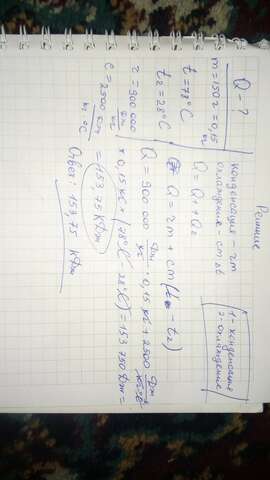 Решение
Q - ?
m = 150 г = 0,15 кг
t = 78°C
t₂ = 28°C
r = 900 000 Дж/кг
c = 2500 Дж/кг·°C
конденсация - rm
охлаждение - cmΔt
1 - конденсация
2 - охлаждение
Q = Q₁ + Q₂
Q = rm + cm(t - t₂)
Q = 900 000 Дж/кг · 0,15 кг + 2500 Дж/кг·°C
* 0,15 кг * (78°C - 28°C) = 153 750 Дж =
= 153,75 кДж
Ответ: 153,75 кДж